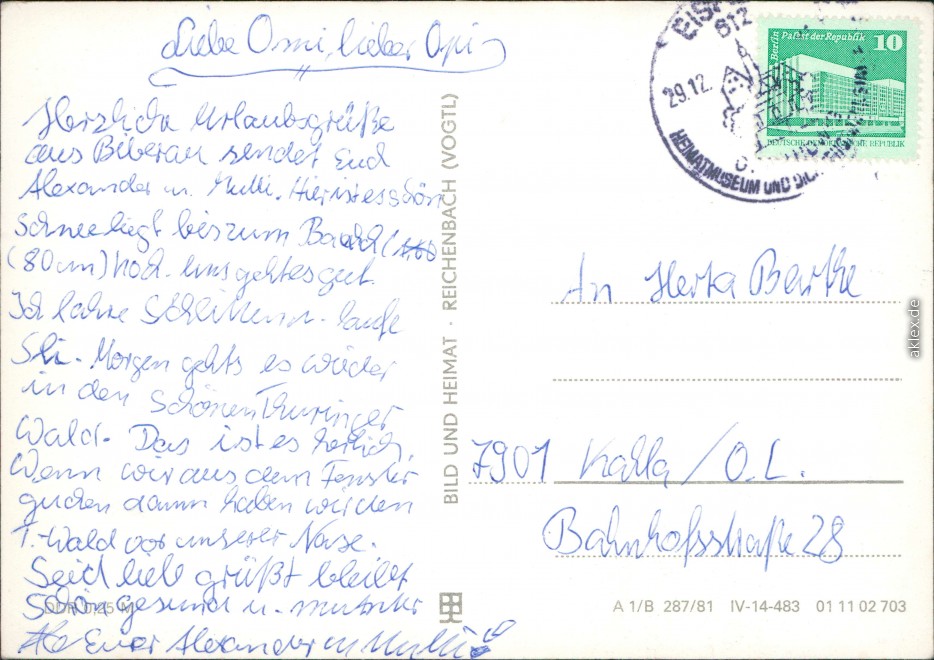 Liebe Omi, lieber Opi
Herzliche Urlaubsgrüße
aus Biberau sendet Euch
Alexander u. Mutti. Hier ist es schön
Schnee liegt bis zum Bauch
(80cm) hoch. Uns geht es gut.
Ich fahre Schlitten u. laufe
Ski. Morgen gehts es wieder
in den schönen Thüringer
Wald. Das ist es herlich,
Wenn wir aus dem Fenster
gucken dann haben wir den
T.-Wald vor unserer Nase.
Seid lieb grüßt bleibt
schön gesund u. munter
Euer Alexander u Mutti
DDR 0,25 M
BILD UND HEIMAT · REICHENBACH (VOGTL)
612
29.12.
HEIMATMUSEUM UND
Berlin Palast der Republik 10
DEUTSCHE DEMOKRATISCHE REPUBLIK
An Herta
7901 /O.L.
Bahnhofsstraße 28
A 1/B 287/81 IV-14-483 01 11 02 703
aklex.de